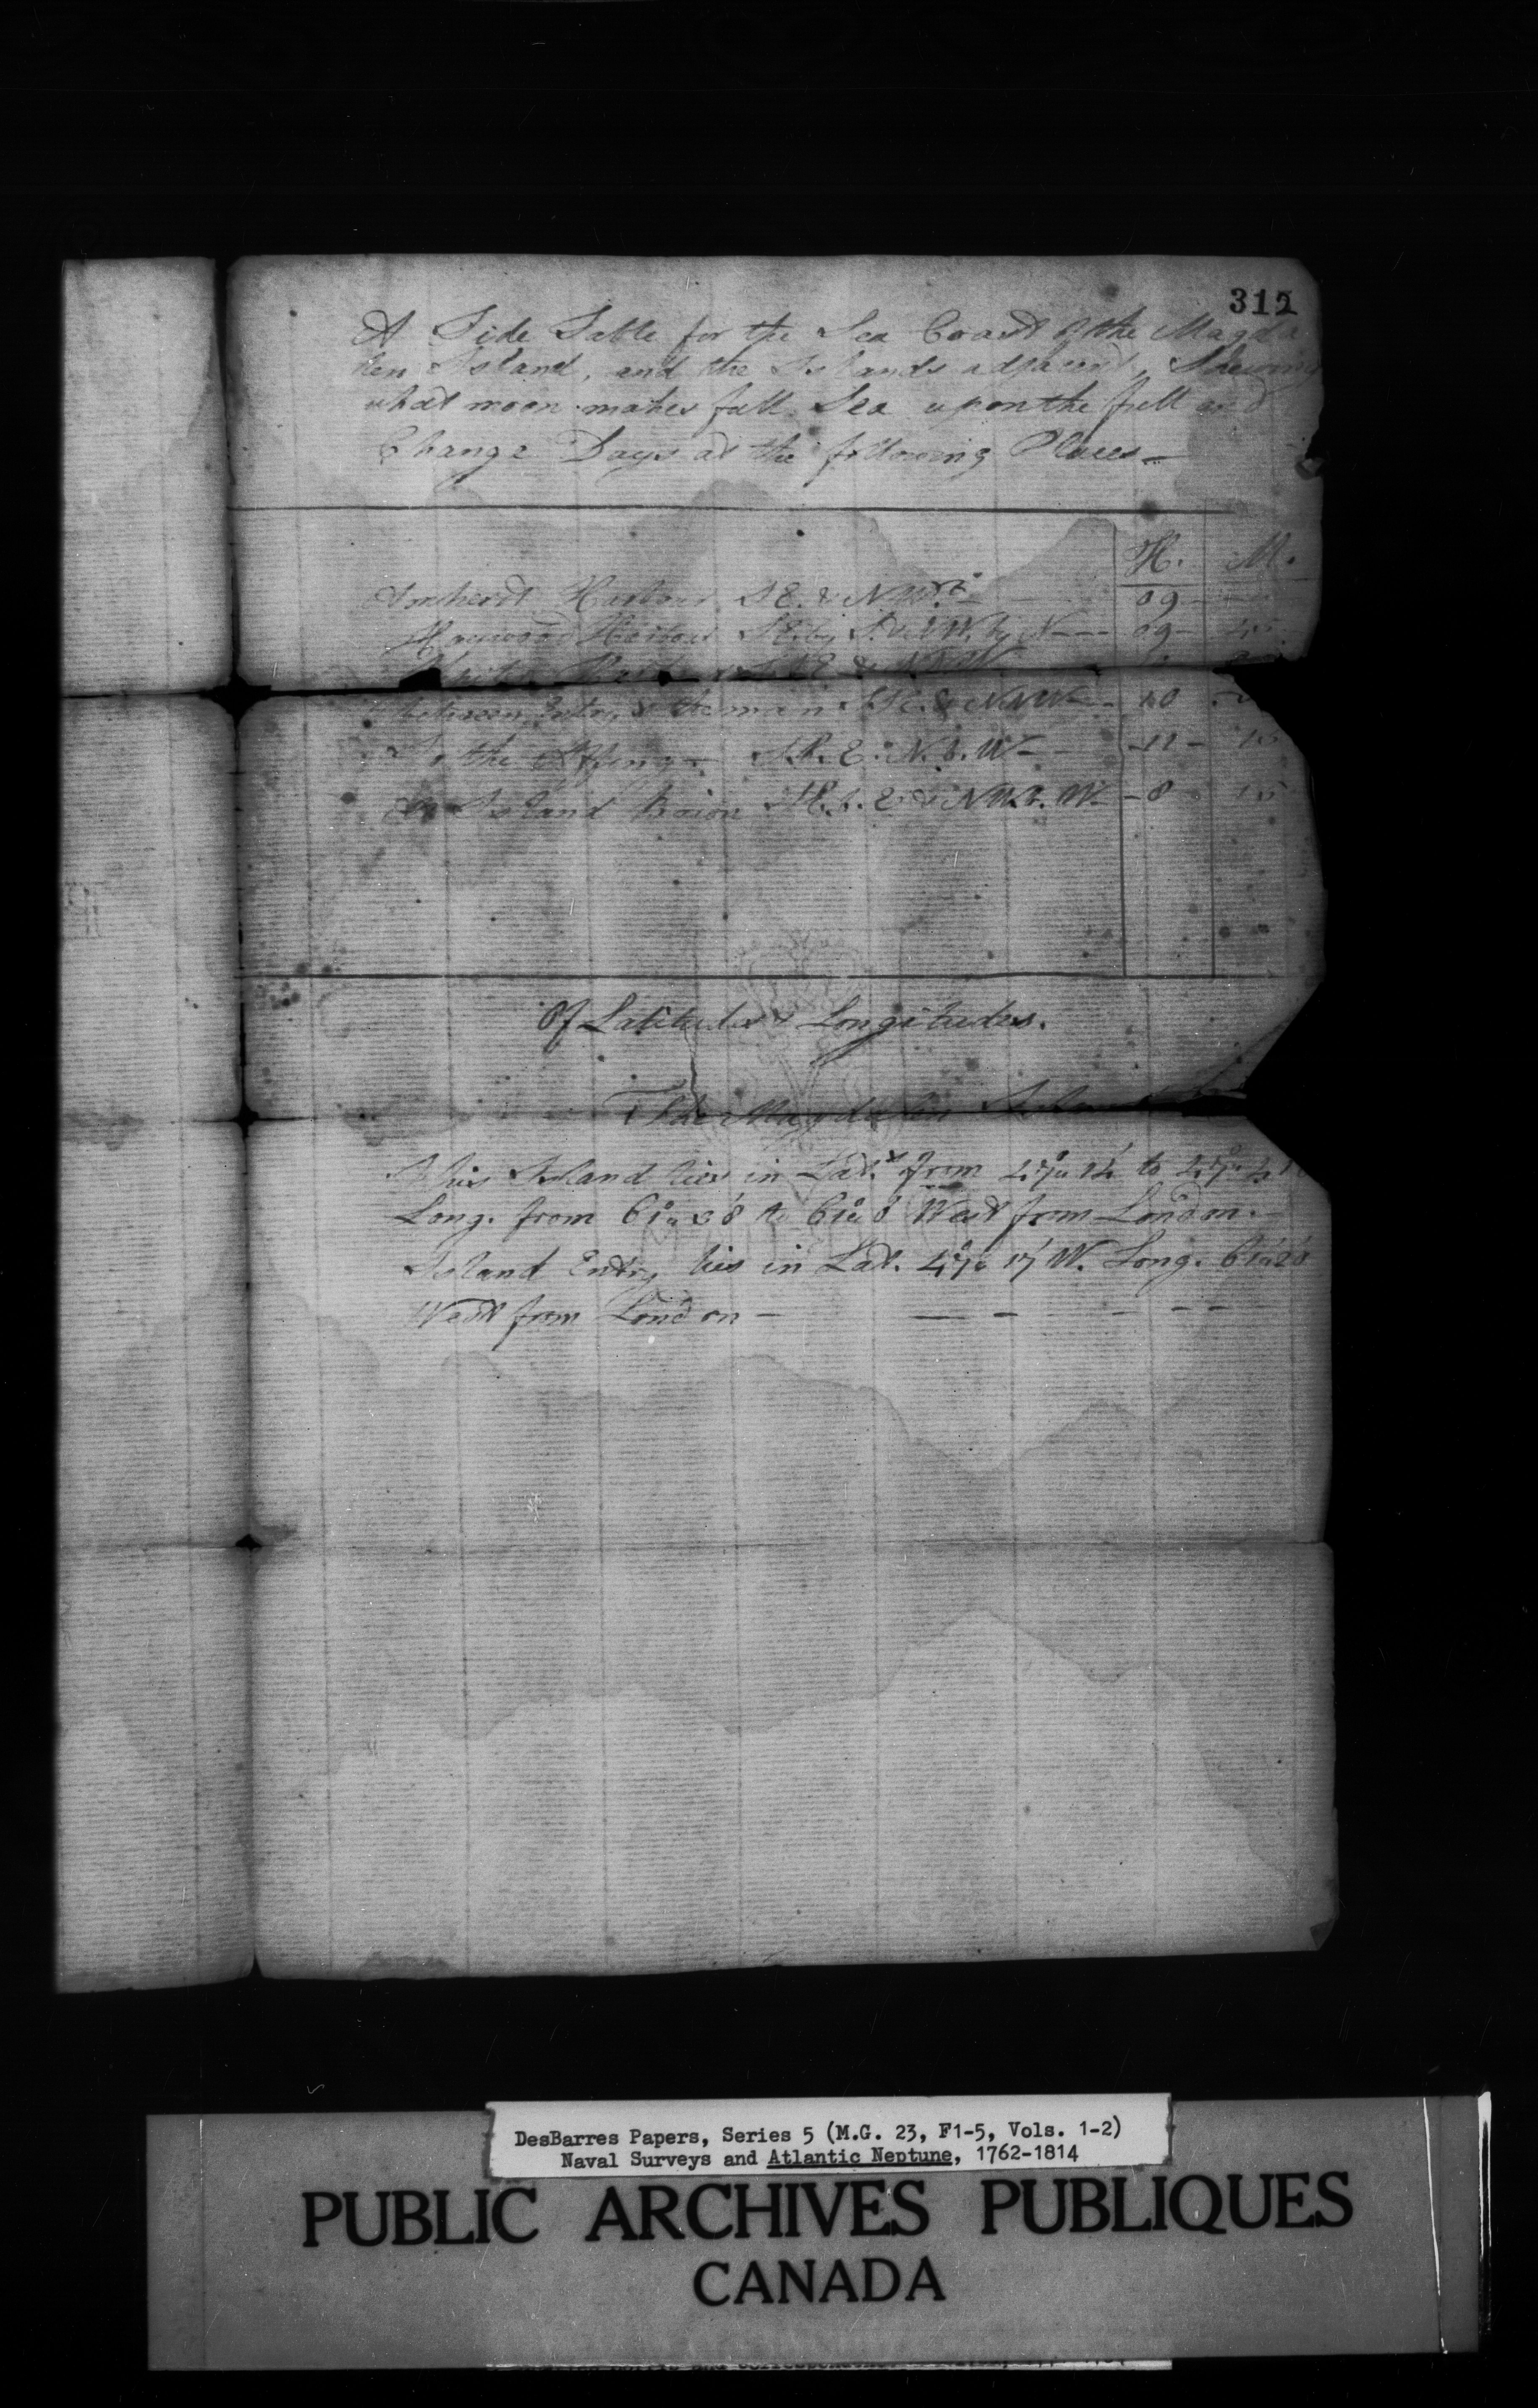 312
A Tide Table for the Sea Coast of the Magda
len Island, and the Islands adjacent, Shewing
what moon makes full Sea upon the full and
Change Days at the following Places —
H. M.
Amherst Harbour SE. & NW. — 09 —
Harbour SE. by S. & NW. by N — — — 09 —
SSE & NNW
between Entry & the main SSE. & NNW — 10
In the Offing — S.b.E. N.b.W — — 11 —
Island Brion SE.b.E & NW.b.W — 8 15
Of Latitudes & Longitudes.
The Magdalen Island
This Island lies in Lat. from 47° 14' to 47°
Long. from 61° 38' to 61° 8' West from London. —
Island Entry lies in Lat. 47° 17' W. Long. 61° 20
West from London — — — — — —
DesBarres Papers, Series 5 (M.G. 23, F1-5, Vols. 1-2)
Naval Surveys and Atlantic Neptune, 1762-1814
PUBLIC ARCHIVES PUBLIQUES
CANADA